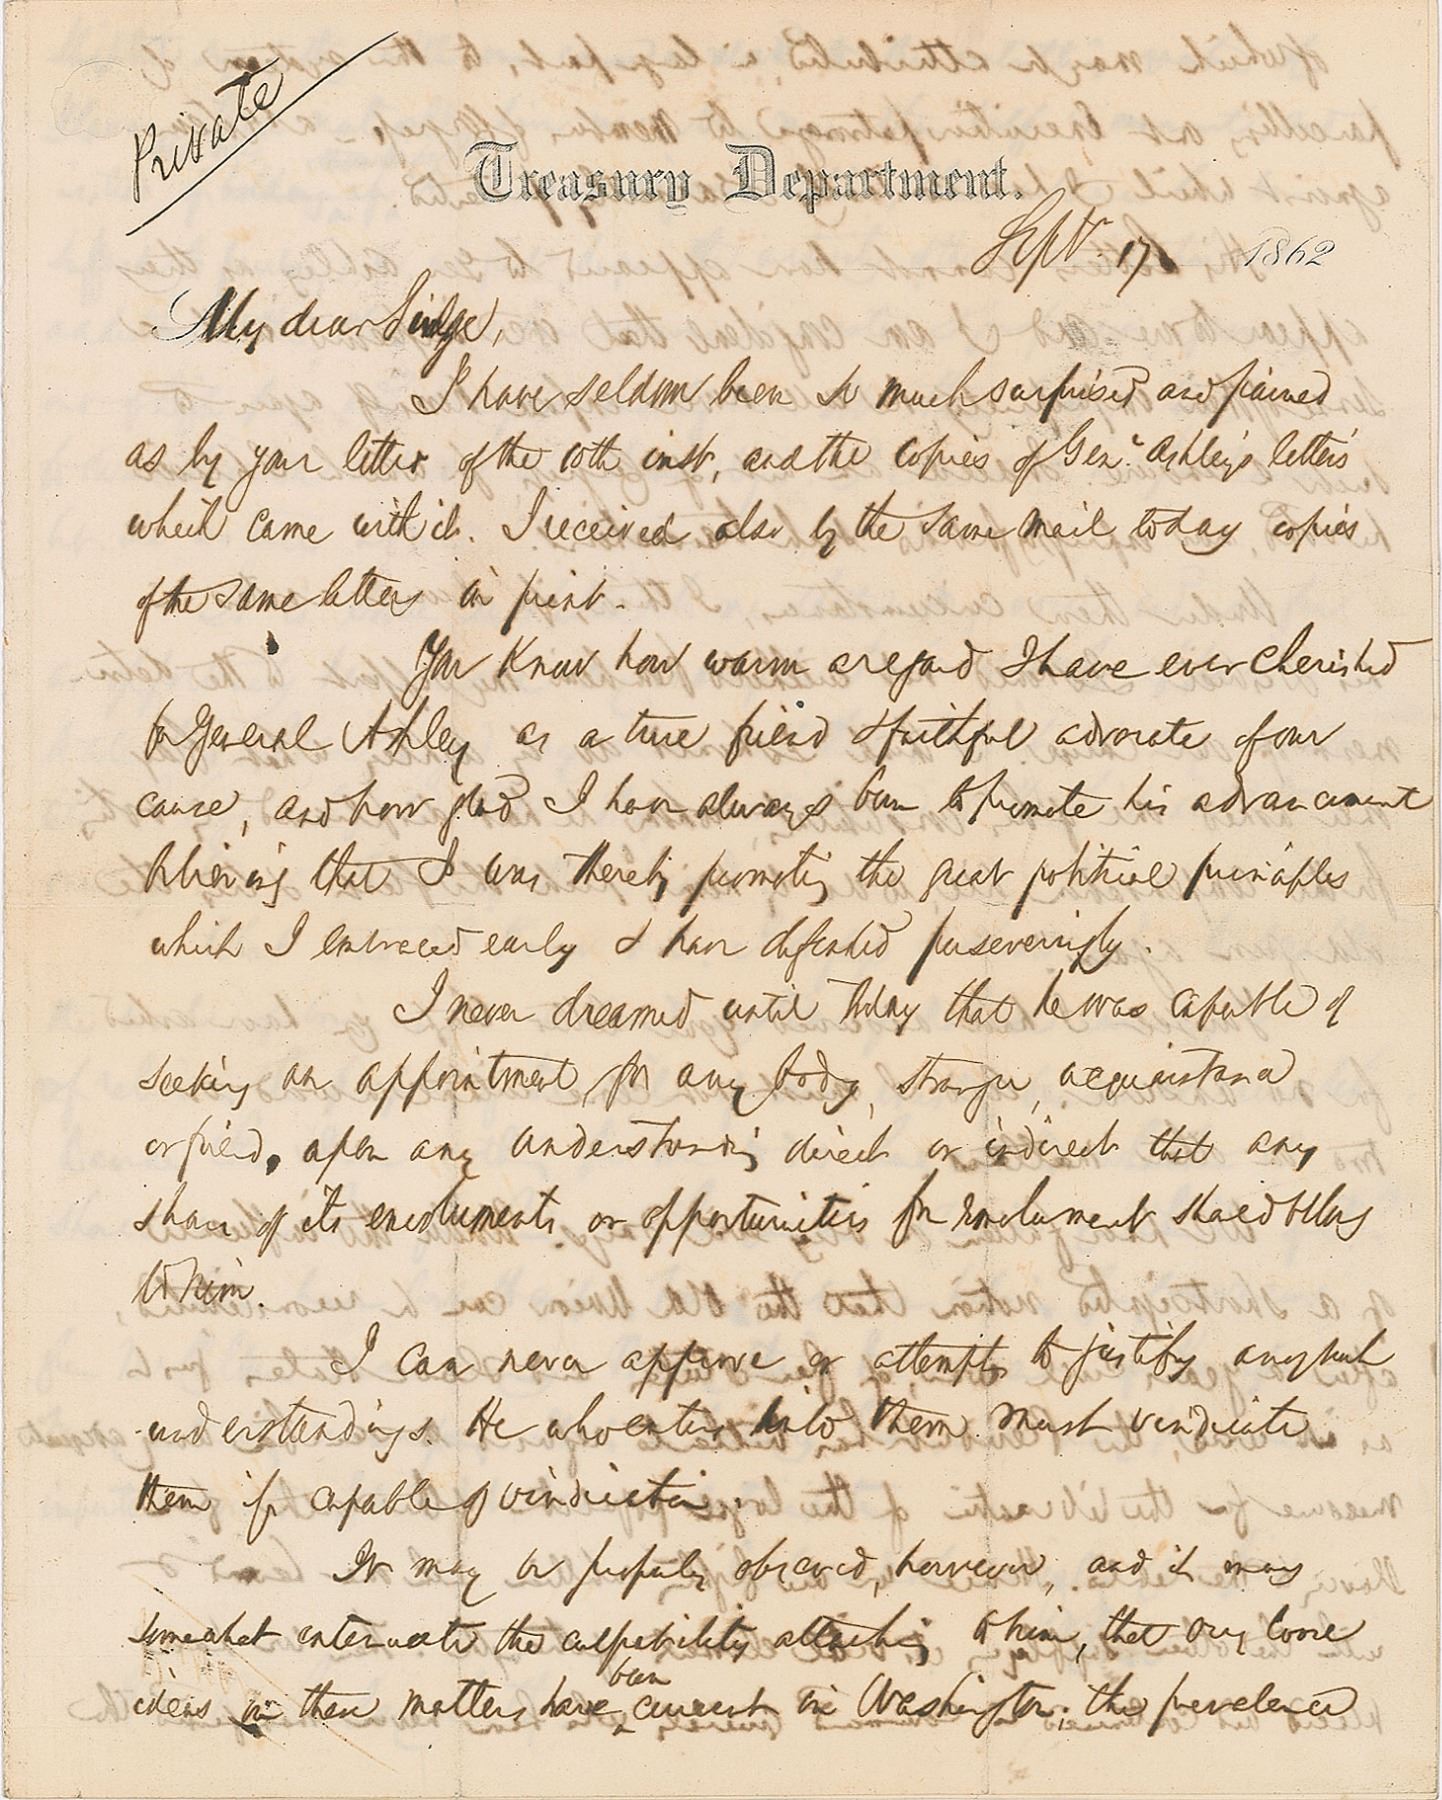 Private
Treasury Department.
Sept. 17 1862
My dear Judge,
I have seldom been so much surprised and pained
as by your letter of the 10th inst, and the copies of Genl. Ashley's letters
which came with it. I received also by the same mail today copies
of the same letters in print.
You know how warm a regard I have ever cherished
for General Ashley as a true friend & faithful advocate of our
cause, and how glad I have always been to promote his advancement
believing that I was thereby promoting the great political principles
which I embraced early & have defended perseveringly.
I never dreamed until today that he was capable of
seeking an appointment for any body, stranger, acquaintance
or friend, upon any understanding direct or indirect that any
share of its emoluments or opportunities for emolument should belong
to him.
I can never approve or attempt to justify any such
understandings. He who enters into them must vindicate
them if capable of vindication.
It may be properly observed, however, and it may
somewhat extenuate the culpability attaching to him, that very loose
ideas in these matters have been current in Washington; the prevalence